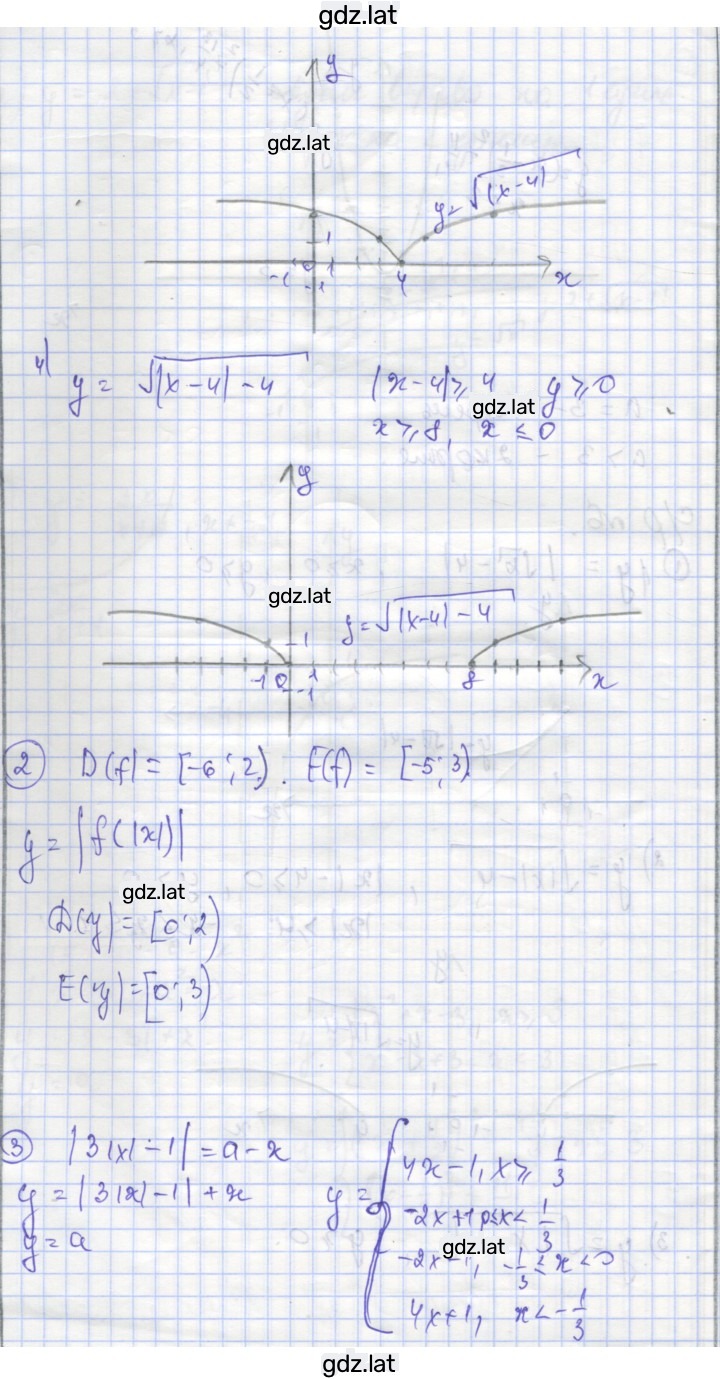 gdz.lat
y
gdz.lat
y = √|x-4|
1
-1 0 1 4 x
-1
4)
y = √|x-4|-4 |x-4|⩾4 y⩾0
gdz.lat
x⩾8, x⩽0
y
gdz.lat
y = √|x-4|-4
1
-1 0 1 8 x
-1
② D(f) = [-6; 2). E(f) = [-5; 3)
y = |f(|x|)|
gdz.lat
D(y) = [0; 2)
E(y) = [0; 3)
③ |3|x|-1| = a-x
y = |3|x|-1|+x y = { 4x-1, x⩾ 1/3
y = a -2x+1, 0⩽x< 1/3
gdz.lat
-2x-1, -1/3 ⩽ x < 0
4x+1, x < -1/3
gdz.lat